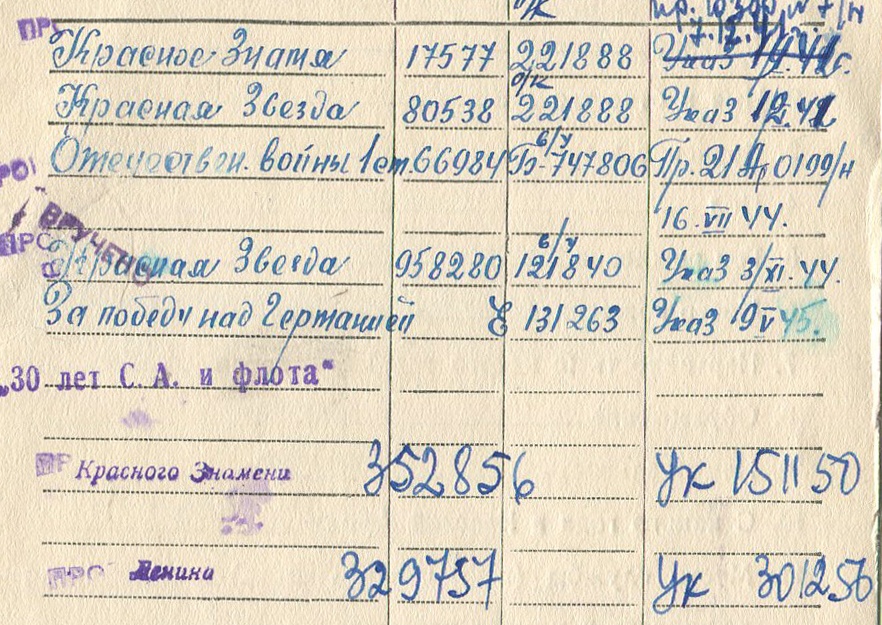 о/к пр. 7/н
ПРО
7.12.41г.
Красное Знамя 17577 221888 Указ
о/к
Красная Звезда 80538 221888 Указ 12.41
б/у
Отечествен. войны 1 ст. 66984 Б-747806 Пр. 21 А, 0199/н
16.VII 44.
ВРУЧЕНО
б/у
Красная Звезда 958280 121840 Указ 3/XI.44.
За победу над Германией Е 131263 Указ 9 V 45.
„30 лет С. А. и флота“
ПР Красного Знамени 352856 Ук 151150
ПРО Ленина 329757 Ук 301256